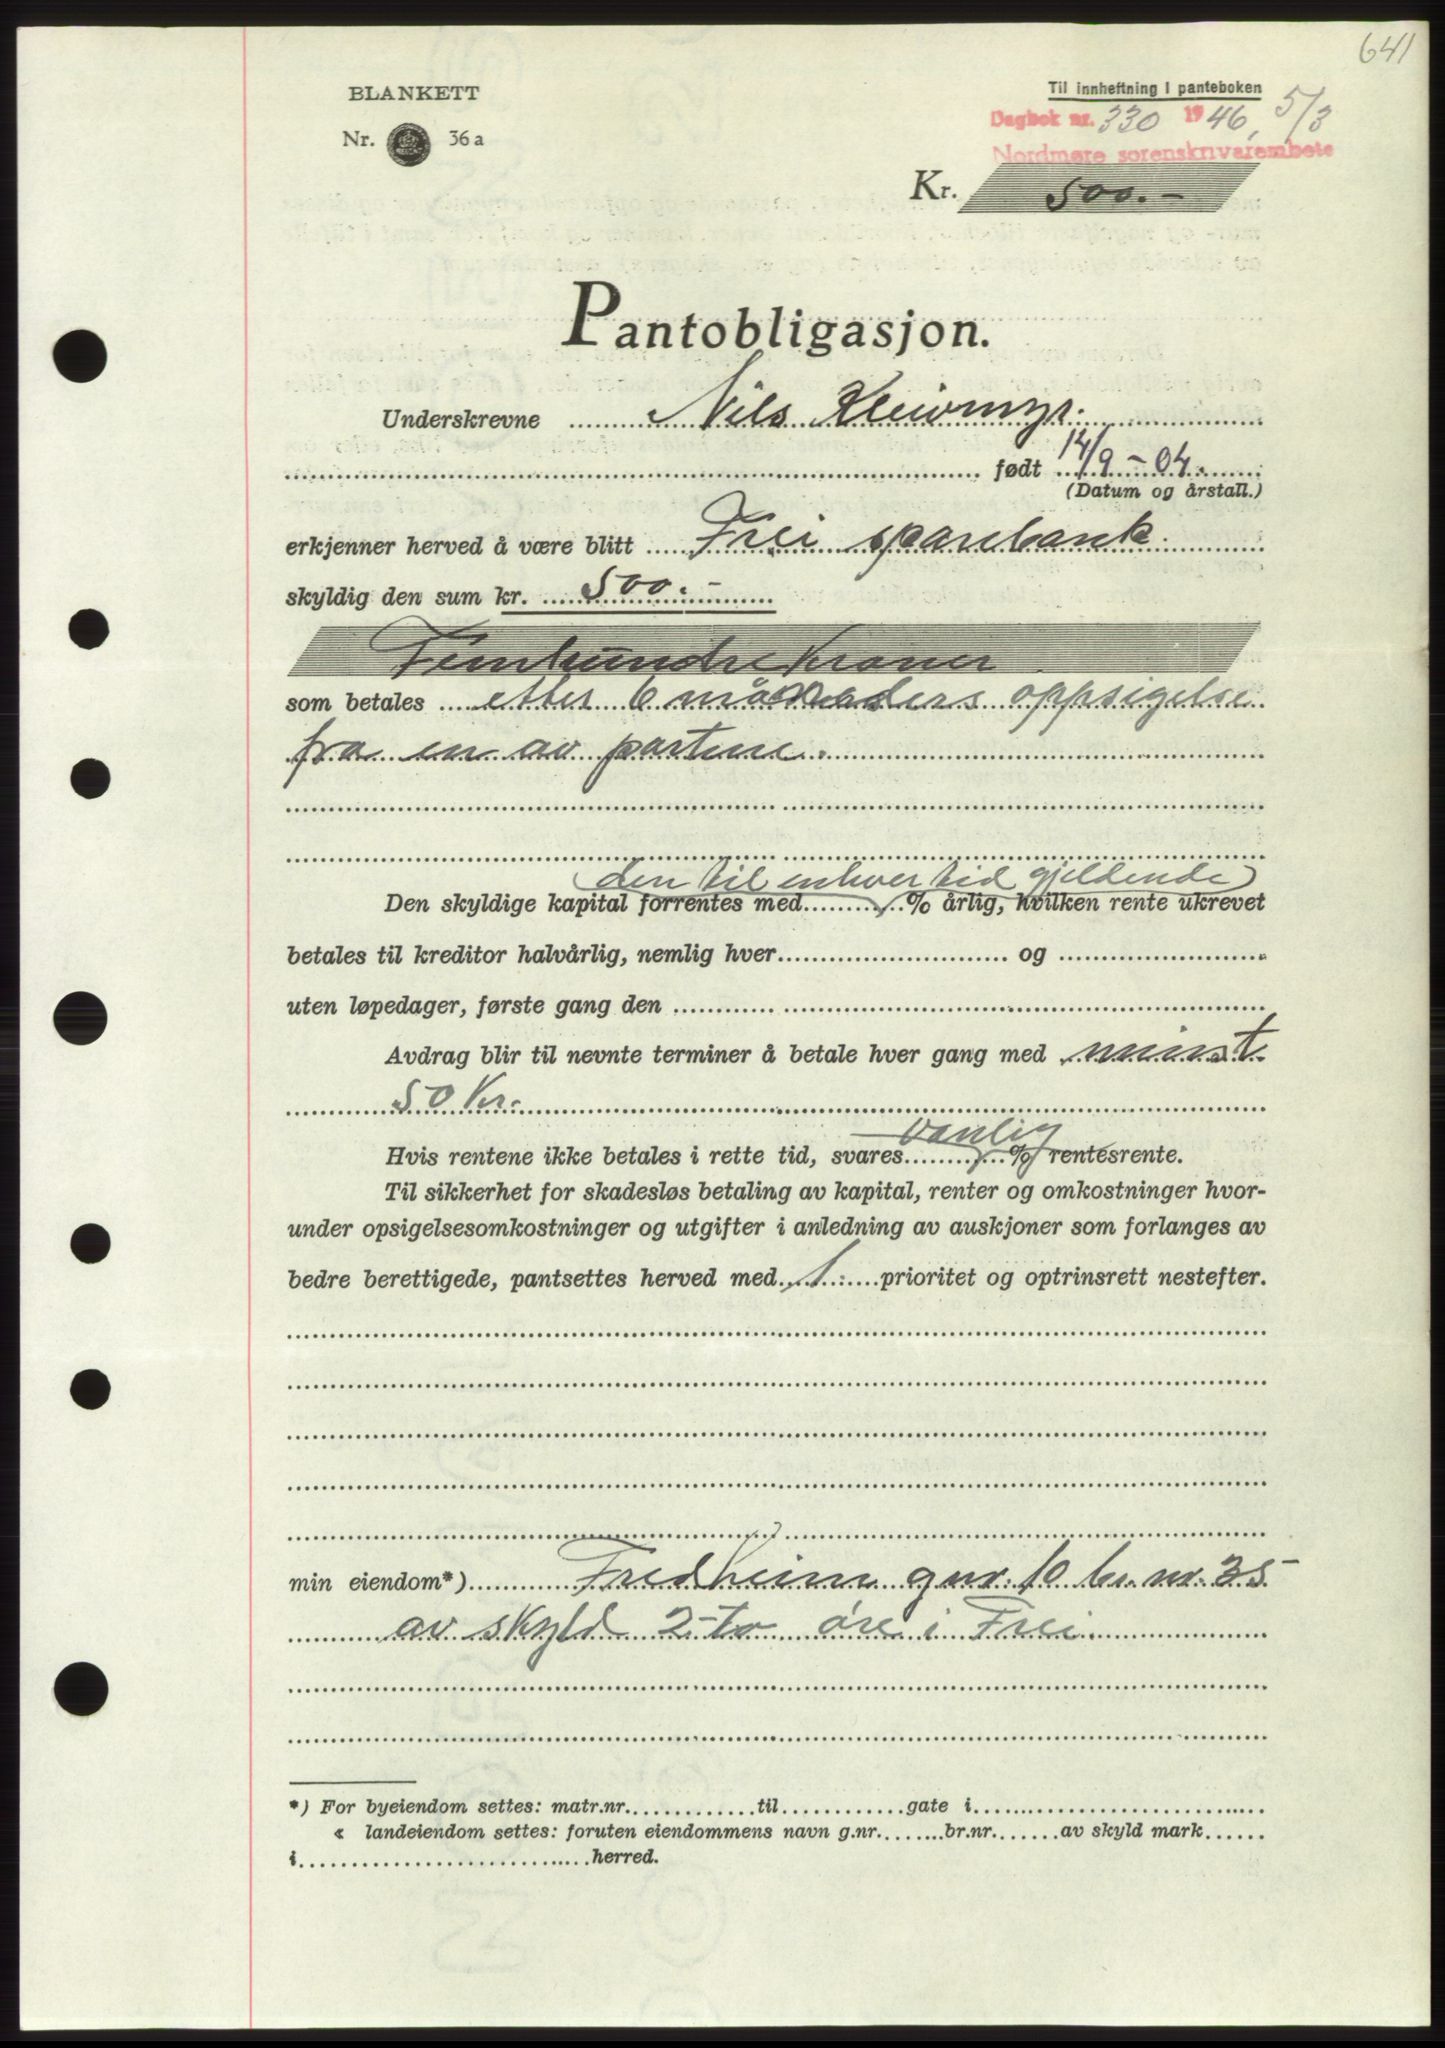 641
BLANKETT
Til innheftning i panteboken
Dagbok nr. 330 1946, 5/3
Nr. 36a
Nordmøre sorenskriverembete
Kr. 500.-
Pantobligasjon.
Underskrevne Nils Kleivmyr.
født 14/9-04.
(Datum og årstall.)
erkjenner herved å være blitt Frei sparebank.
skyldig den sum kr. 500.-
Femhundre kroner
som betales etter 6 måneders oppsigelse
fra en av partene.
den til enhver tid gjeldende
Den skyldige kapital forrentes med % årlig, hvilken rente ukrevet
betales til kreditor halvårlig, nemlig hver og
uten løpedager, første gang den
Avdrag blir til nevnte terminer å betale hver gang med minst
50 Kr.
vanlig
Hvis rentene ikke betales i rette tid, svares % rentesrente.
Til sikkerhet for skadesløs betaling av kapital, renter og omkostninger hvor-
under opsigelsesomkostninger og utgifter i anledning av auskjoner som forlanges av
bedre berettigede, pantsettes herved med 1. prioritet og optrinsrett nestefter.
min eiendom*) Fredheim gnr. 10 br. nr. 35
av skyld 2-to øre i Frei.
*) For byeiendom settes: matr.nr. til gate i
« landeiendom settes: foruten eiendommens navn g.nr. br.nr. av skyld mark
i herred.